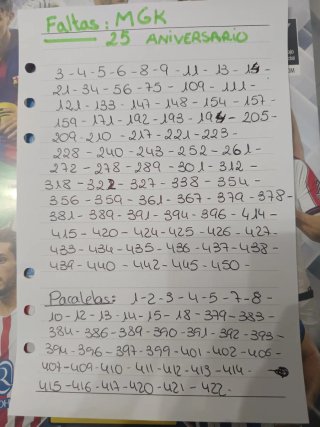 Faltas: MGK
25 ANIVERSARIO
3-4-5-6-8-9-11-13-14-
21-34-56-75-109-111-
121-133-147-148-154-157-
159-171-192-193-194-205-
209-210-217-221-223-
228-240-243-252-261-
272-278-289-301-312-
318-322-327-338-354-
356-359-361-367-379-378-
381-389-391-394-396-414-
415-420-424-425-426-427-
433-434-435-436-437-438-
439-440-442-445-450-
Paralelas: 1-2-3-4-5-7-8-
10-12-13-14-15-18-379-383-
384-386-389-390-391-392-393-
394-396-397-399-401-402-405-
407-409-410-411-412-413-414-
415-416-417-420-421-422-